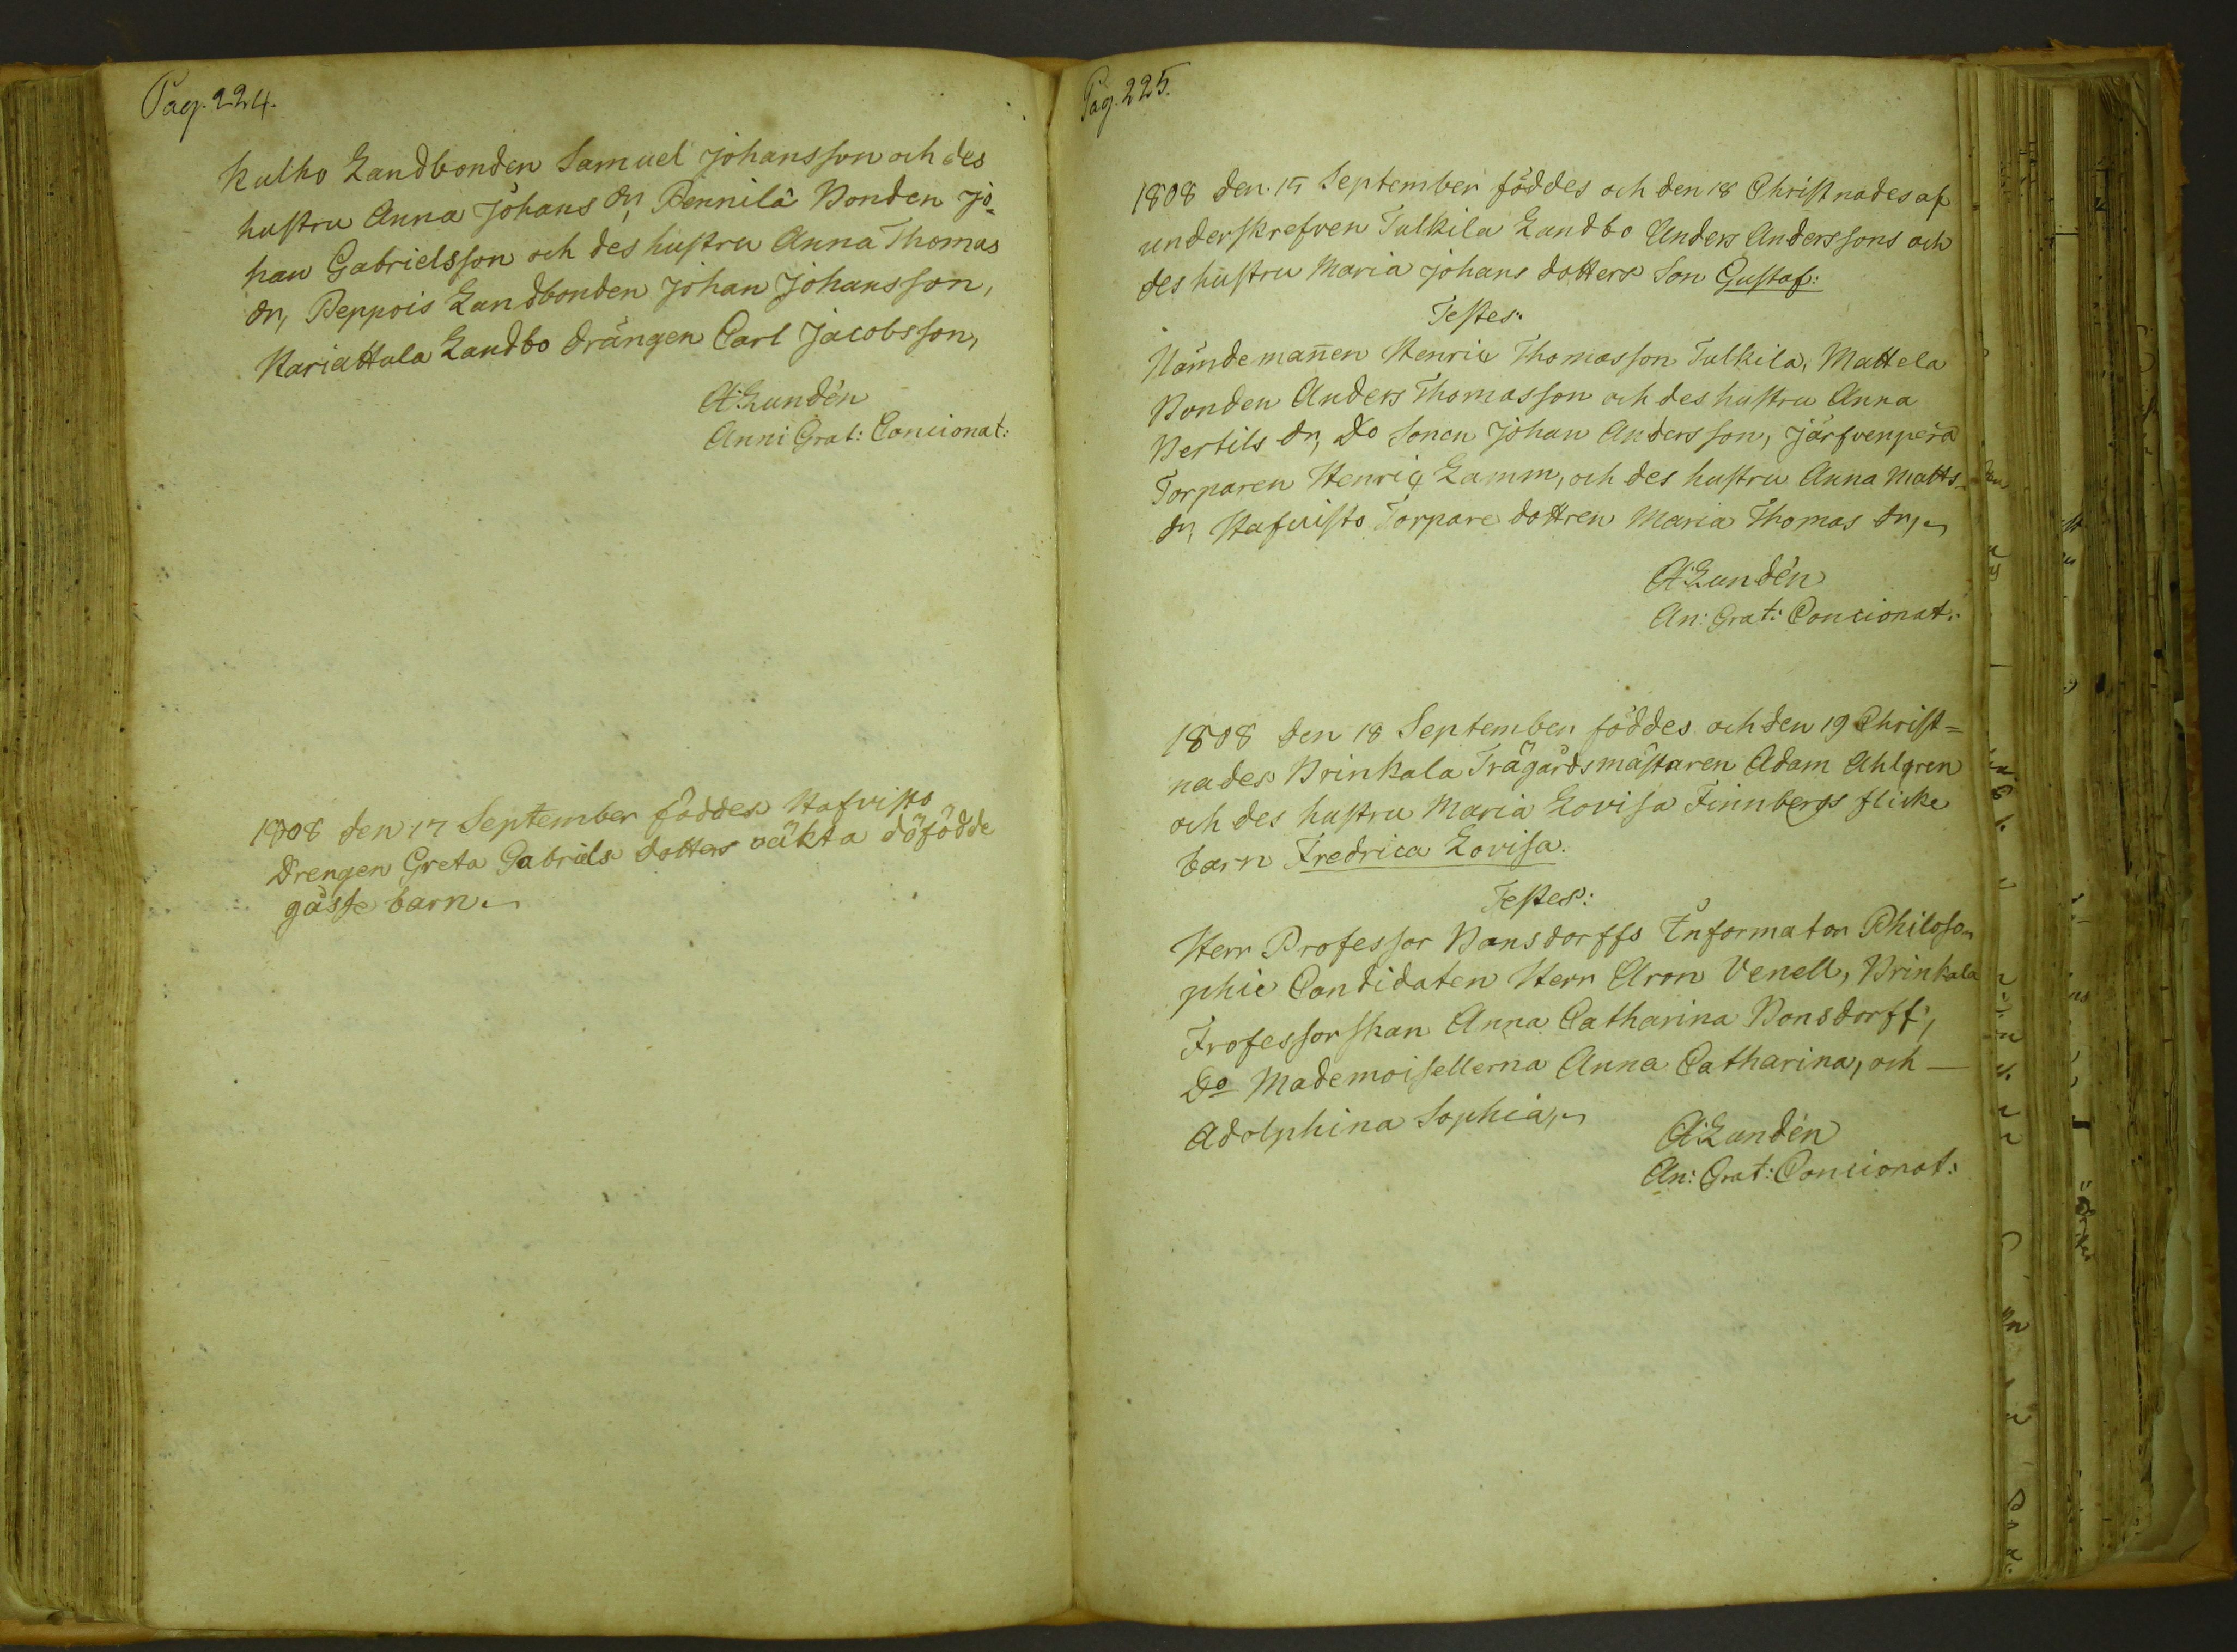 Pag. 224.
Kulho Landbonden Samuel Johansson och des
hustru Anna Johans dr, Pennilä Bonden Jo-
han Gabrielsson och des hustru Anna Thomas
dr, Peppois Landbonden Johan Johansson,
Kariattula Landbo drängen Carl Jacobsson,
A: Lundén
Anni Grat: Concionat:
1808 den 17 September föddes Hafvisto
Drengen Greta Gabriels dotters oäkta döfödde
gåsse barn.
Pag. 225.
1808 den 15 September föddes och den 18 Christnades af
underskrefven Tulkila Landbo Anders Anderssons och
des hustru Maria Johans dotters Son Gustaf:
Testes:
Nämdemanen Henric Thomasson Tulkila, Mattela
Bonden Anders Thomasson och des hustru Anna
Bertils dr, Do Sonen Johan Andersson, Järfvenperä
Torparen Henric Lamm, och des hustru Anna Matts-
dr, Hafvisto Torpare dottren Maria Thomas dr,
A: Lundén
An: Grat: Concionat:
1808 den 18 September föddes och den 19 Christ=
nades Brinkala Trägårdsmästaren Adam Ahlgren
och des hustru Maria Lovisa Finnbergs flicke
barn Fredrica Lovisa.
Testes:
Herr Professor Bonsdorffs Informator Philoso-
phie Candidaten Herr Aron Venell, Brinkala
Professorskan Anna Catharina Bonsdorff,
Do Mademoisellerna Anna Catharina, och —
Adolphina Sophia,
A: Lundén
An: Grat: Concionat: